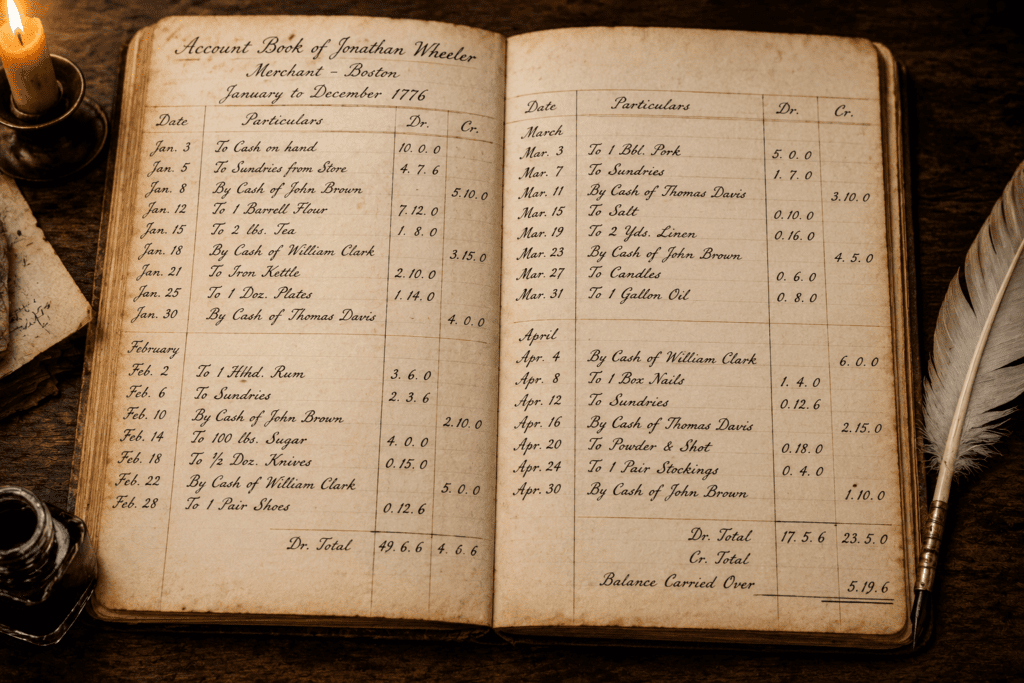 Account Book of Jonathan Wheeler
Merchant – Boston
January to December 1776
Date Particulars Dr. Cr.
Jan. 3 To Cash on hand 10. 0. 0
Jan. 5 To Sundries from Store 4. 7. 6
Jan. 8 By Cash of John Brown 5.10. 0
Jan. 12 To 1 Barrell Flour 7. 12. 0
Jan. 15 To 2 lbs. Tea 1. 8. 0
Jan. 18 By Cash of William Clark 3.15. 0
Jan. 21 To Iron Kettle 2. 10. 0
Jan. 25 To 1 Doz. Plates 1. 14. 0
Jan. 30 By Cash of Thomas Davis 4. 0. 0
February
Feb. 2 To 1 Hhd. Rum 3. 6. 0
Feb. 6 To Sundries 2. 3. 6
Feb. 10 By Cash of John Brown 2.10. 0
Feb. 14 To 100 lbs. Sugar 4. 0. 0
Feb. 18 To ½ Doz. Knives 0.15. 0
Feb. 22 By Cash of William Clark 5. 0. 0
Feb. 28 To 1 Pair Shoes 0.12. 6
Dr. Total 49. 6. 6 4. 6. 6
Date Particulars Dr. Cr.
March
Mar. 3 To 1 Bbl. Pork 5. 0. 0
Mar. 7 To Sundries 1. 7. 0
Mar. 11 By Cash of Thomas Davis 3.10. 0
Mar. 15 To Salt 0.10. 0
Mar. 19 To 2 Yds. Linen 0.16. 0
Mar. 23 By Cash of John Brown 4. 5. 0
Mar. 27 To Candles 0. 6. 0
Mar. 31 To 1 Gallon Oil 0. 8. 0
April
Apr. 4 By Cash of William Clark 6. 0. 0
Apr. 8 To 1 Box Nails 1. 4. 0
Apr. 12 To Sundries 0.12. 6
Apr. 16 By Cash of Thomas Davis 2.15. 0
Apr. 20 To Powder & Shot 0.18. 0
Apr. 24 To 1 Pair Stockings 0. 4. 0
Apr. 30 By Cash of John Brown 1.10. 0
Dr. Total 17. 5. 6 23. 5. 0
Cr. Total
Balance Carried Over 5.19. 6